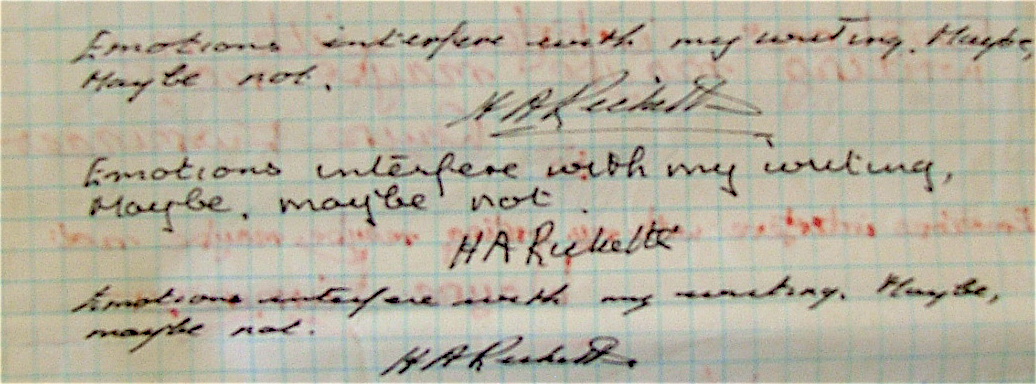 Emotions interfere with my writing. Maybe,
Maybe not.
H A Ricketts
Emotions interfere with my writing,
Maybe, maybe not.
H A Ricketts
Emotions interfere with my writing. Maybe,
maybe not.
H A Ricketts